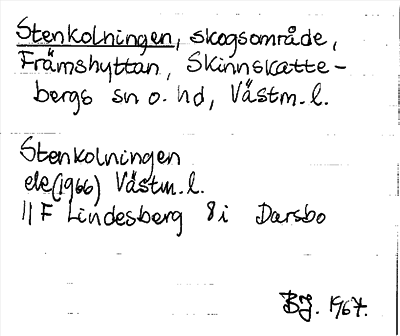 Stenkolningen, skogsområde,
Främshyttan, Skinnskatte-
bergs sn o. hd, Västm. l.
Stenkolningen
ele(1966) Västm. l.
11 F Lindesberg 8i Darsbo
BJ. 1967.